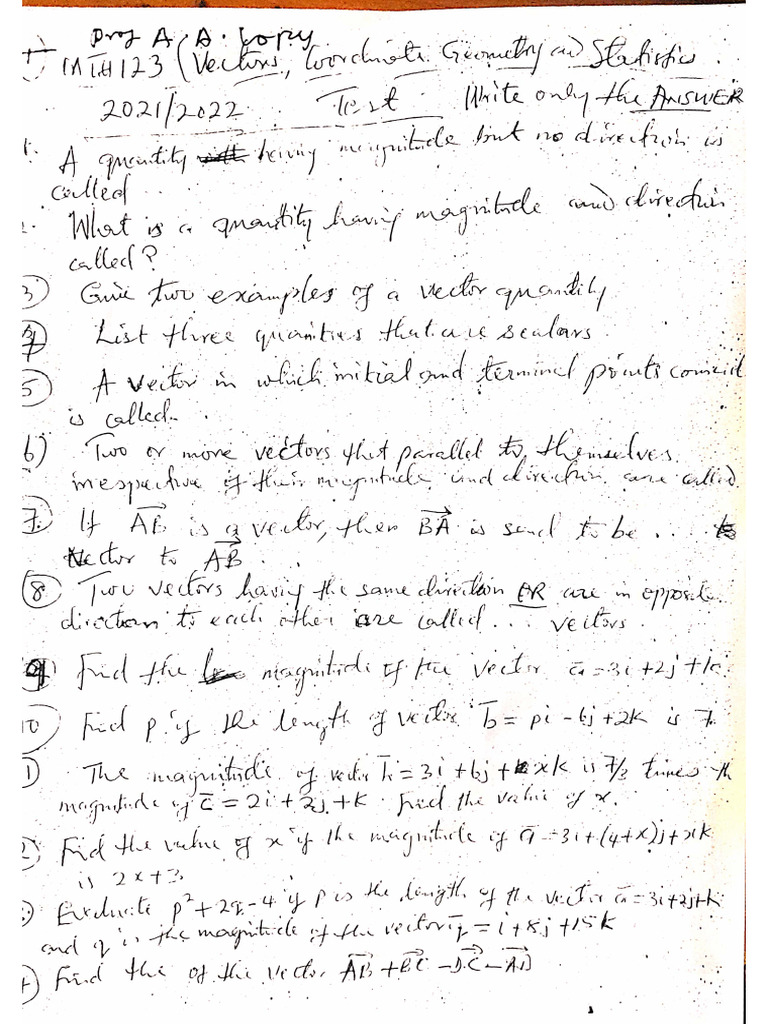 Prof A. A. Copy
MTH123 (Vectors, Coordinate Geometry and Statistics
2021/2022 Test Write only the ANSWER
1. A quantity having magnitude but no direction is
called
2. What is a quantity having magnitude and direction
called?
3) Give two examples of a vector quantity
4 List three quantities that are scalars.
5 A vector in which initial and terminal points coincid
is called..
6) Two or more vectors that parallel to themselves
irrespective of their magnitude and direction are called
7. If AB is a vector, then BA is said to be ...
Vector to AB.
8 Two vectors having the same direction OR are in opposite
direction to each other are called... vectors.
9 Find the magnitude of the vector a = 3i + 2j + k.
10 Find p if the length of vector b = pi - 6j + 2k is 7.
1) The magnitude of vector b = 3i + 6j + xk is 7/3 times th
magnitude of c = 2i + 2j + k. Find the value of x.
2 Find the value of x if the magnitude of a = 3i + (4+x)j + xk
is 2x+3
3 Evaluate p² + 2q - 4 if p is the length of the vector a = 3i + 2j + k
and q is the magnitude of the vector q = i + 8j + 15k
4) Find the of the vector AB + BC - DC - AD